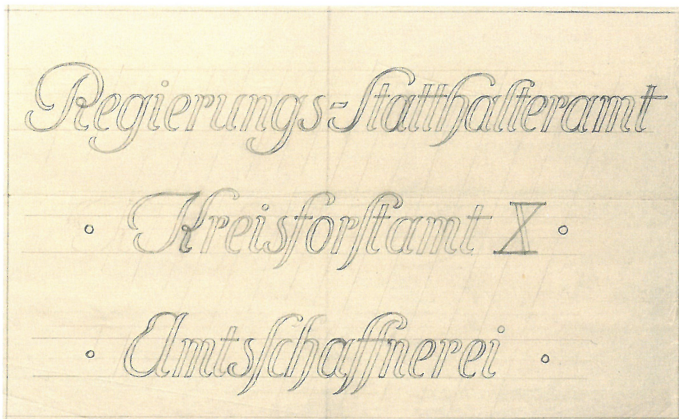 Regierungs-Statthalteramt
Kreisforstamt X
Amtsschaffnerei